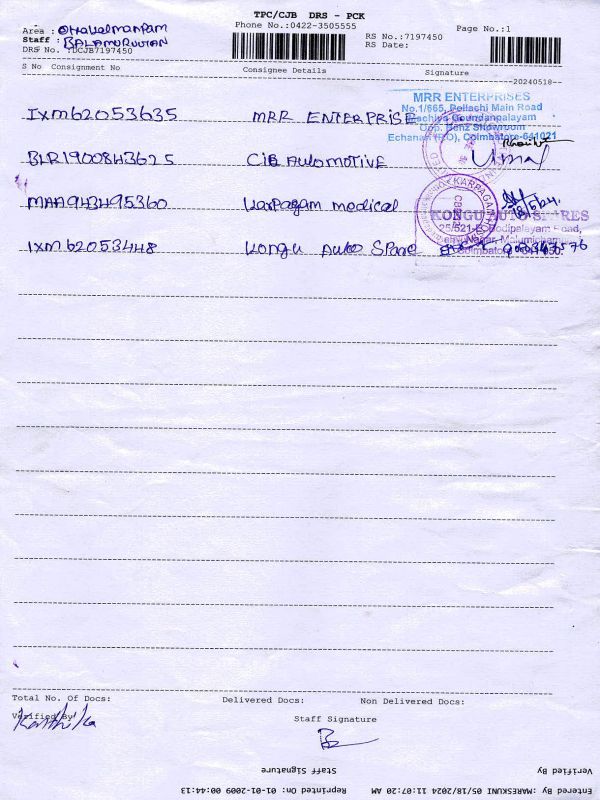 TPC/CJB DRS - PCK
Phone No.:0422-3505555
Page No.:1
Area : Othakalmanpam
Staff : BALAMURUGAN
DRS No. :DCJB7197450
RS No.:7197450
RS Date:
S No Consignment No Consignee Details Signature
--20240518--
IXM62053635 MRR ENTERPRISE
MRR ENTERPRISES
No.1/665, Pollachi Main Road
Machiya Goundanpalayam
Opp. Benz Showroom
Echanari (P.O), Coimbatore-641021
BLR1900843625 CIB AUTOMOTIVE Uma
MAA943495360 Karpagam medical
KARPAGAM
18/5/24
IXM62053448 Kongu Auto Spare
KONGU AUTO SPARES
Total No. Of Docs: Delivered Docs: Non Delivered Docs:
Verified By Staff Signature
Karthika
Staff Signature Verified By
Entered By: MARESKUNI 05/18/2024 11:07:20 AM Reprinted On: 01-01-2009 00:44:13